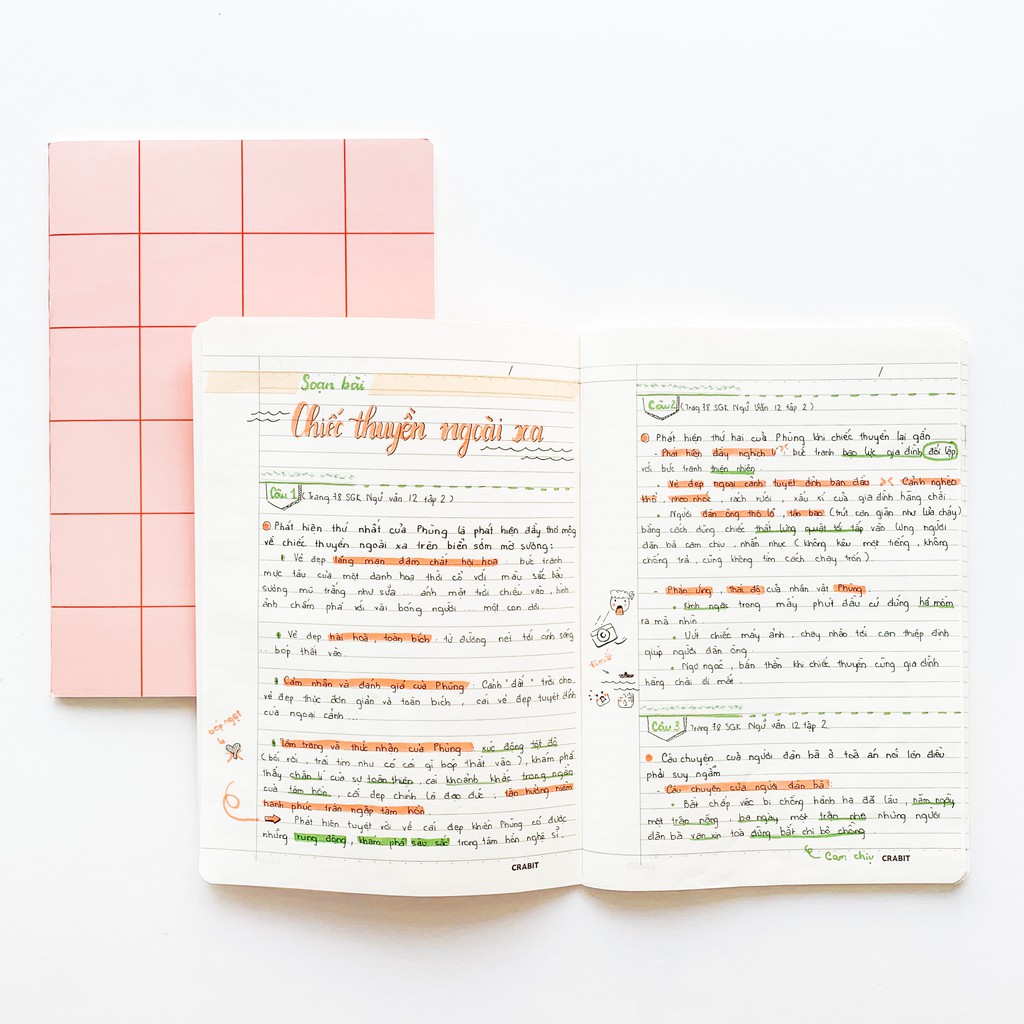 /
Soạn bài
Chiếc thuyền ngoài xa
Câu 1 (Trang 78 SGK Ngữ văn 12 tập 2)
Phát hiện thứ nhất của Phùng là phát hiện đầy thơ mộng
về chiếc thuyền ngoài xa trên biển sớm mờ sương:
Vẻ đẹp lãng mạn đậm chất hội hoạ: bức tranh
mực tàu của một danh hoạ thời cổ với màu sắc bầu
sương mù trắng như sữa ... ánh mặt trời chiếu vào, hình
ảnh chấm phá với vài bóng người ... một con dơi.
Vẻ đẹp hài hoà, toàn bích: từ đường nét tới ánh sáng
... bóp thắt vào.
Cảm nhận và đánh giá của Phùng: Cảnh "đắt" trời cho,
vẻ đẹp thực đơn giản và toàn bích, cái vẻ đẹp tuyệt đỉnh
của ngoại cảnh ...
bóp nghẹt
Tâm trạng và thức nhận của Phùng: xúc động tột độ
(bối rối, trái tim như có cái gì bóp thắt vào), khám phá
thấy chân lí của sự toàn thiện, cái khoảnh khắc trong ngần
của tâm hồn, cái đẹp chính là đạo đức, tận hưởng niềm
hạnh phúc tràn ngập tâm hồn.
Phát hiện tuyệt vời về cái đẹp khiến Phùng có được
những rung động, khám phá sâu sắc trong tâm hồn nghệ sĩ.
CRABIT
/
Câu 2 (Trang 78 SGK Ngữ Văn 12 tập 2)
Phát hiện thứ hai của Phùng khi chiếc thuyền lại gần
- Phát hiện đầy nghịch lí: bức tranh bạo lực gia đình đối lập
với bức tranh thiên nhiên.
Vẻ đẹp ngoại cảnh tuyệt đỉnh ban đầu >< Cảnh nghèo
khổ, nheo nhóc, rách rưới, xấu xí của gia đình hàng chài.
Người đàn ông thô lỗ, tàn bạo (trút cơn giận như lửa cháy)
bằng cách dùng chiếc thắt lưng quật tới tấp vào lưng người
đàn bà cam chịu, nhẫn nhục (không kêu một tiếng, không
chống trả, cũng không tìm cách chạy trốn).
- Phản ứng, thái độ của nhân vật Phùng:
Kinh ngạc trong mấy phút đầu cứ đứng há mồm
ra mà nhìn.
Vứt chiếc máy ảnh, chạy nhào tới can thiệp định
giúp người đàn ông.
Ngơ ngác, bần thần khi chiếc thuyền cùng gia đình
hàng chài đi mất.
Câu 3 Trang 78 SGK Ngữ văn 12 tập 2.
Câu chuyện của người đàn bà ở toà án nói lên điều
phải suy ngẫm
- Câu chuyện của người đàn bà:
Bất chấp việc bị chồng hành hạ đã lâu, năm ngày
một trận nặng, ba ngày một trận nhẹ nhưng người
đàn bà van xin toà đừng bắt chị bỏ chồng
Cam chịu
CRABIT